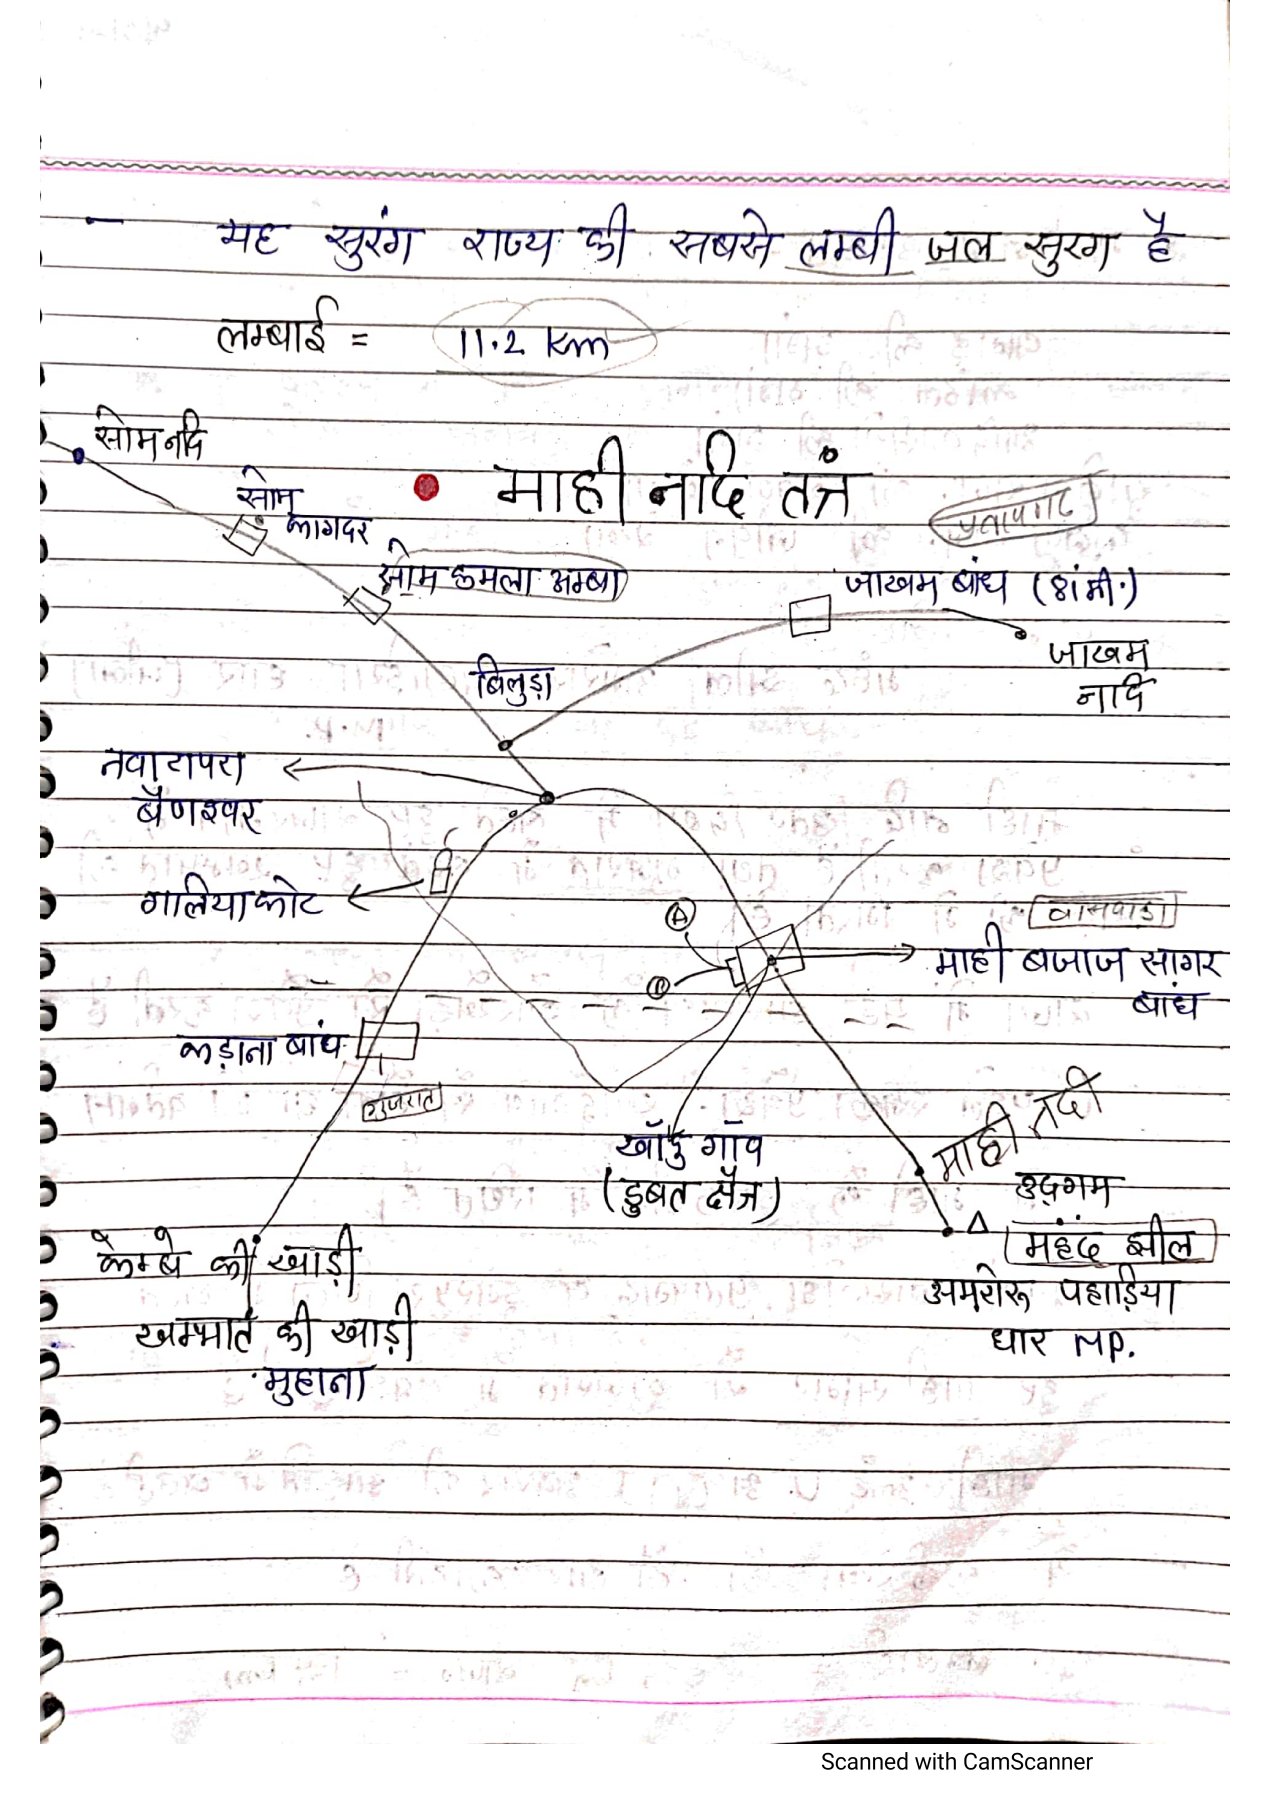 – यह सुरंग राज्य की सबसे लम्बी जल सुरग है
लम्बाई = 11.2 km
सोम नदि
सोम
कागदर
• माही नदि तंत्र
प्रतापगढ
सोम कमला अम्बा
जाखम बांध (81 मी.)
जाखम
नादि
बिलुड़ा
नवाटापरा
बेणेश्वर
गालियाकोट
A
B
वासवाडा
माही बजाज सागर
बांध
कड़ाना बांध
गुजरात
खाँदु गाँव
(डुबत क्षेत्र)
माही नदी
उद्‌गम
महंद झील
अमरोरू पहाड़िया
धार MP.
केम्बे की खाड़ी
खम्भात की खाड़ी
मुहाना
Scanned with CamScanner